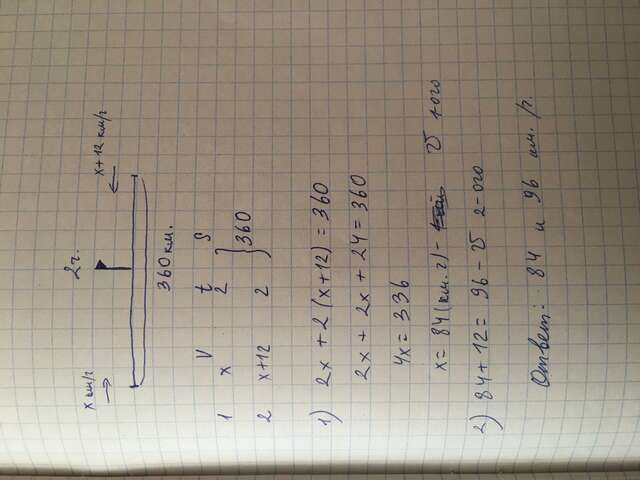 2ч.
х км/ч х+12 км/ч
360 км.
V t S
1 х 2
} 360
2 х+12 2
1) 2х + 2 (х+12) = 360
2х + 2х + 24 = 360
4х = 336
х = 84 (км.ч) - V 1ого
2) 84 + 12 = 96 - V 2-ого
Ответ: 84 и 96 км./ч.